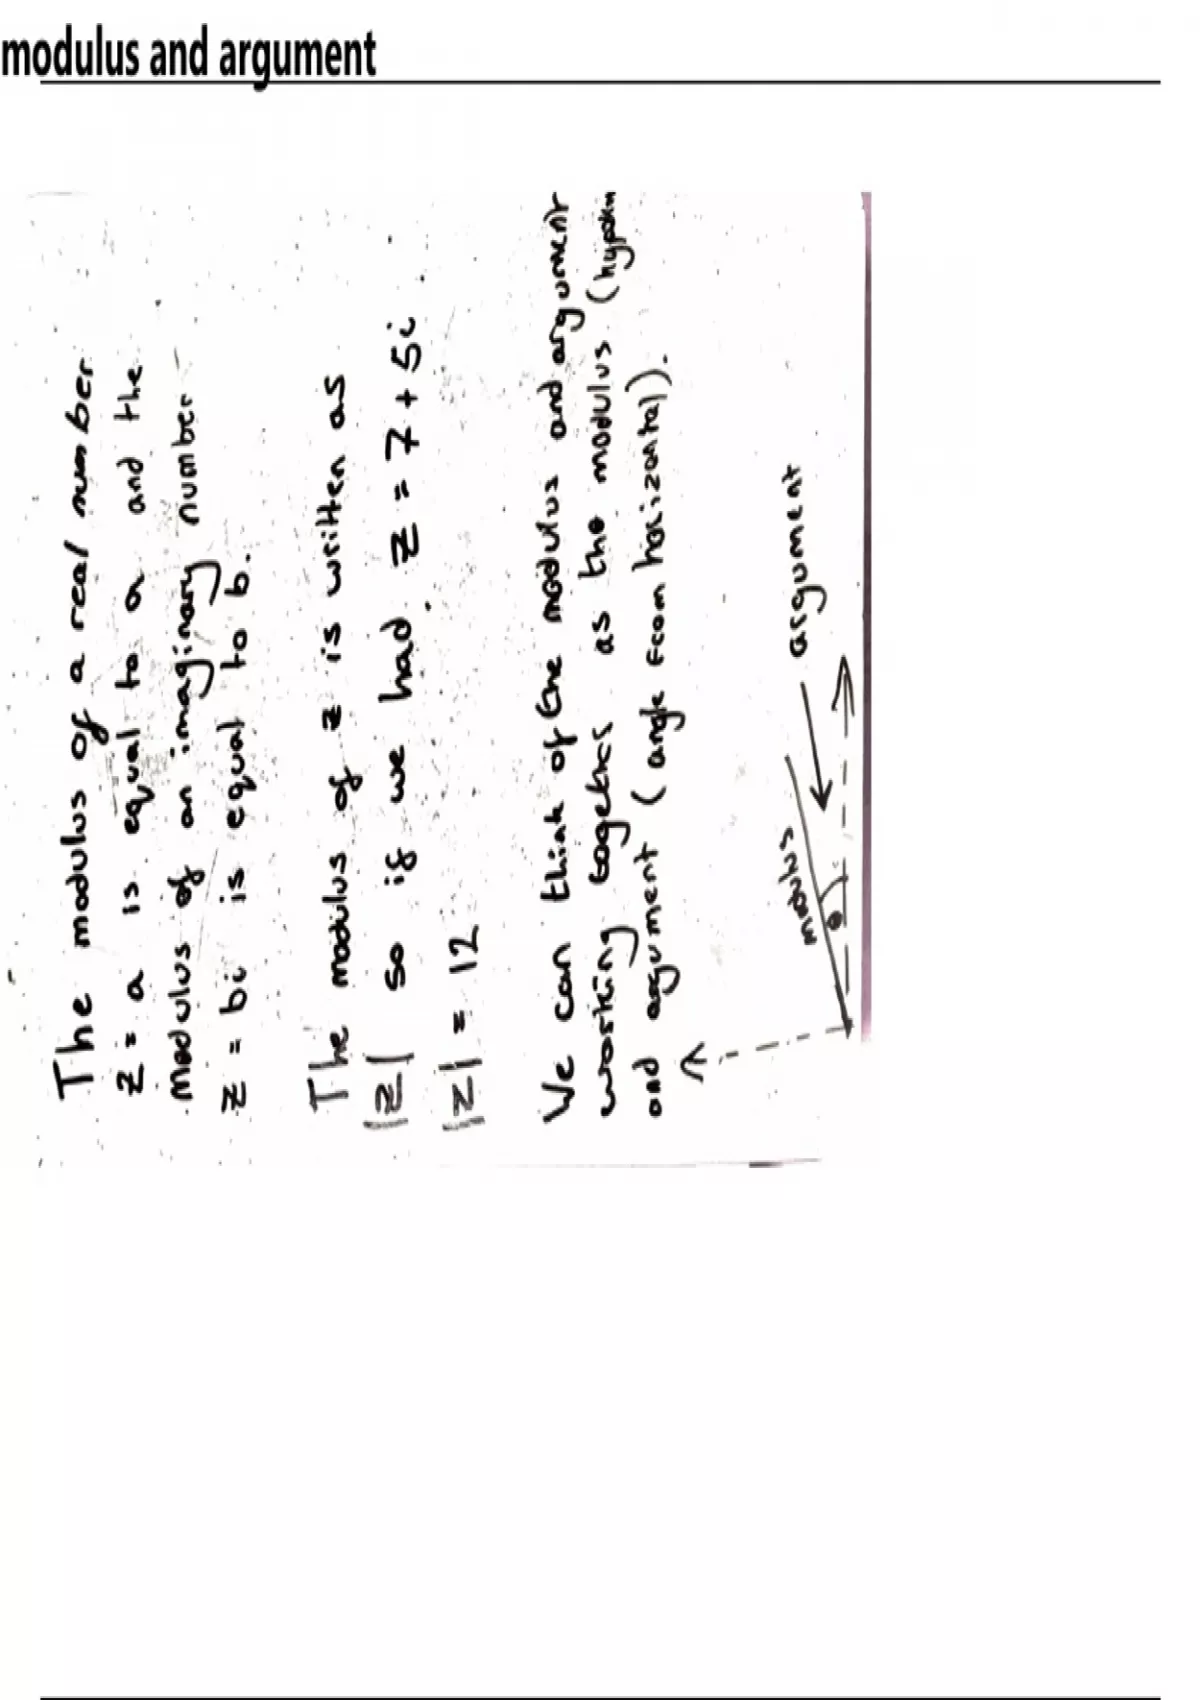 modulus and argument
The modulus of a real number
z = a is equal to a and the
modulus of an imaginary number
z = bi is equal to b.
The modulus of z is written as
|z| so if we had z = 7 + 5i
|z| = 12
We can think of the modulus and argument
working together as the modulus (hypoten
and argument (angle from horizontal)).
modulus
θ
argument